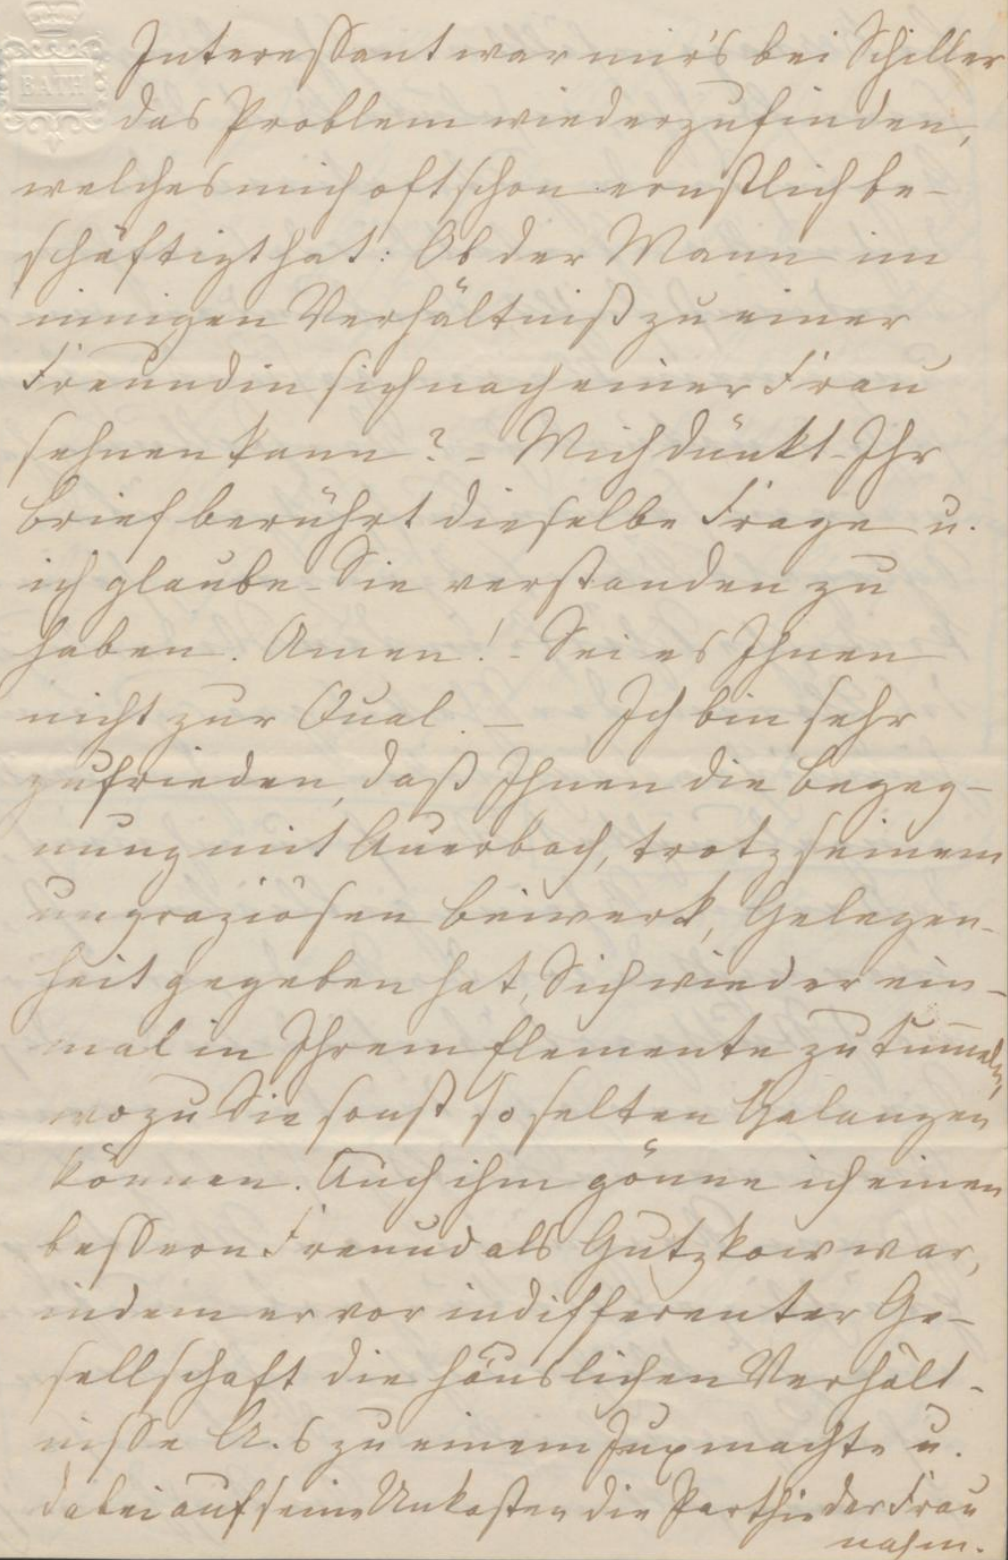 BATH
Interessant war mir's bei Schiller
das Problem wiederzufinden,
welches mich oft schon ernstlich be-
schäftigt hat: Ob der Mann im
innigen Verhältniß zu einer
Freundin sich nach einer Frau
sehnen kann? - Mich dünkt Ihr
Brief berührt dieselbe Frage u.
ich glaube Sie verstanden zu
haben. Amen! - Sei es Ihnen
nicht zur Qual. - Ich bin sehr
zufrieden, daß Ihnen die Begeg-
nung mit Auerbach, trotz seinem
ungraziösen Beiwerk, Gelegen-
heit gegeben hat, Sich wieder ein-
mal in Ihrem Elemente zu tummeln,
wozu Sie sonst so selten Gelangen
können. Auch ihm gönne ich einen
bessern Freund als Gutzkow war,
indem er vor indifferenter Ge-
sellschaft die häuslichen Verhält-
nisse A.s zu einem Jux machte u.
dabei auf seine Unkosten die Parthie der Frau
nahm.